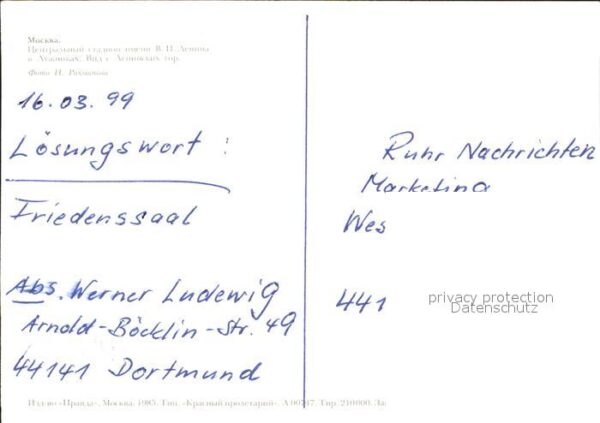 Москва.
Центральный стадион имени В. И. Ленина
в Лужниках. Вид с Ленинских гор.
Фото Н. Рахманова
16.03.99
Lösungswort:
Friedenssaal
Abs. Werner Ludewig
Arnold-Böcklin-Str. 49
44141 Dortmund
Ruhr Nachrichten
Marketing
Wes
441
privacy protection
Datenschutz
Изд-во «Правда», Москва. 1985. Тип. «Красный пролетарий». А 00747. Тир. 210 000. За